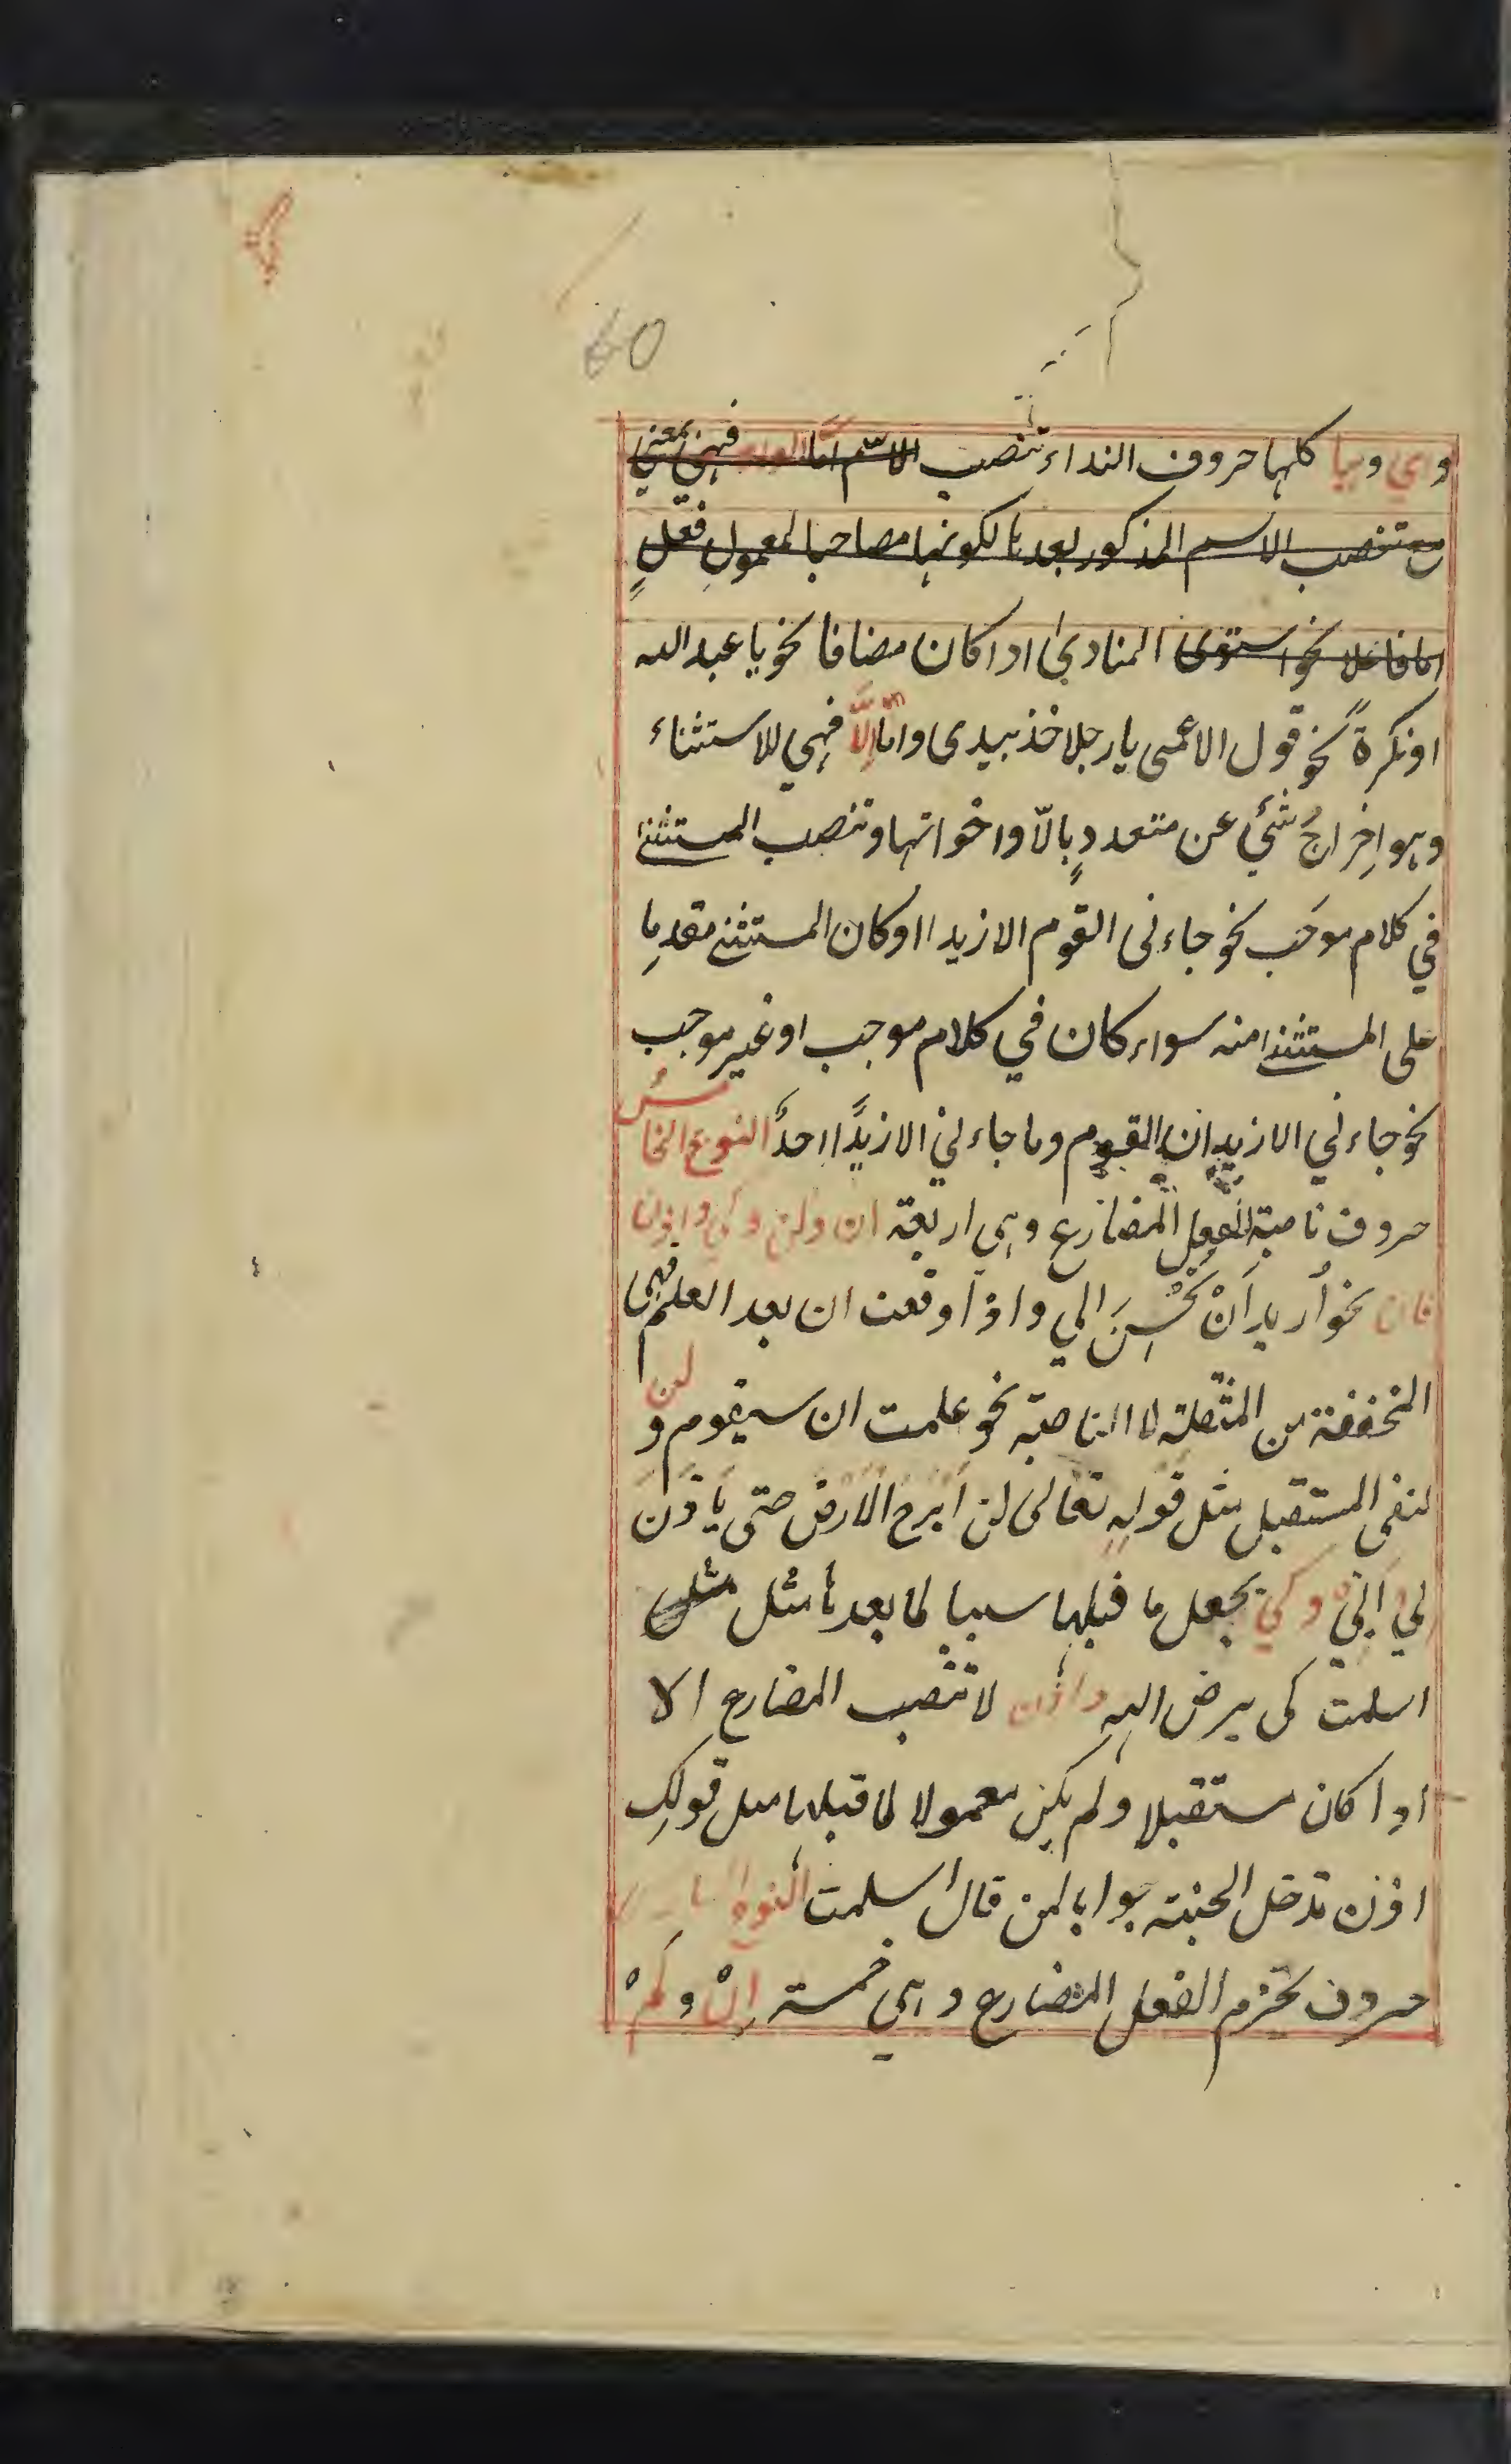 60
واي وهيا كلها حروف النداء تنصب الاسم اما الواو فهي بمعنى
مع تنصب الاسم المذكور بعدها لكونها مصاحبا لمعمولِ فعلٍ
اما فاعلا نحو استوى المنادي اذا كان مضافا نحو يا عبد الله
او نكرةً نحو قول الاعمى يا رجلا خذ بيدى واما اِلّا فهي للاستثناء
وهو اِخراجُ شئي عن متعددٍ بالّا واخواتها وتنصب المستثنى
في كلام موجَب نحو جاءنى القوم الا زيدا او كان المستثنى مقدما
على المستثنى منه سواء كان في كلام موجب او غير موجب
نحو جاءني الا زيدان القوم وما جاءني الا زيدًا احدٌ النوع الخامسُ
حروف ناصبة الفعل المضارع وهي اربعة ان ولن وكي واذن
فان نحو اُريد اَنْ تُحْسِنَ الي واذا وقعت ان بعد العلم فهى
المخففة من المثقلة لا الناصبة نحو علمت ان سيقوم و لن
لنفى المستقبل مثل قولهِ تعالى لن اَبْرح الْاَرْضَ حتى يَأذَنَ
لِي اَبِي وكي تجعل ما قبلها سببا لما بعدها مثل مثل
اسلمت كى يرض الله واذن لا تنصب المضارع الا
اذا كان مستقبلا ولم يكن معمولا لما قبلها مثل قولكِ
اذن تدخل الجنة جوابا لمن قال اسلمت النوع السادس
حروف تجزم الفعل المضارع وهي خمسة اِنْ ولَمْ